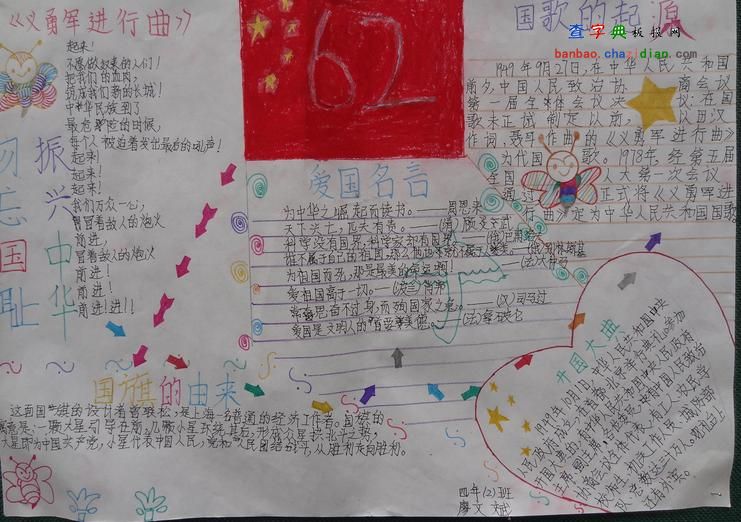 《义勇军进行曲》
起来!
不愿做奴隶的人们!
把我们的血肉,
筑成我们新的长城!
中华民族到了
最危险的时候,
每个人被迫着发出最后的吼声!
起来!
起来!
起来!
我们万众一心,
冒着敌人的炮火
前进,
冒着敌人的炮火
前进!
前进!
前进!进!!
勿忘国耻
振兴中华
62
国歌的起源
查字典板报网
banbao.chazidian.com
1949年9月27日,在中华人民共和国
前夕,中国人民政治协商会议
第一届全体会议决议:在国
歌未正试制定以前,以田汉
作词、聂耳作曲的《义勇军进行曲》
为代国歌。1978年,经第五届
全国人大第一次会议
通过正式将《义勇军进
行曲》定为中华人民共和国国歌
爱国名言
为中华之崛起而读书。——周恩来
天下兴亡,匹夫有责。——(清)顾炎武
科学没有国界,科学家却有国界。
为祖国而死,那是最美的命运啊!
爱祖国高于一切。——(波兰)肖邦
常思奋不顾身,而殉国家之急。——(汉)司马迁
爱国是文明人的首要美德。——(法)拿破仑
国旗的由来
这面国旗的设计者曾联松,是上海一名普通的经济工作者。国旗的
寓意是:一颗大星引导在前,几颗小星环绕其后,形似众星拱北斗之势,
大星即为中国共产党,小星代表中国人民,党和人民团结合作,从胜利走向胜利。
开国大典
1949年10月1日,中华人民共和国中央
四年(2)班
廖文斌